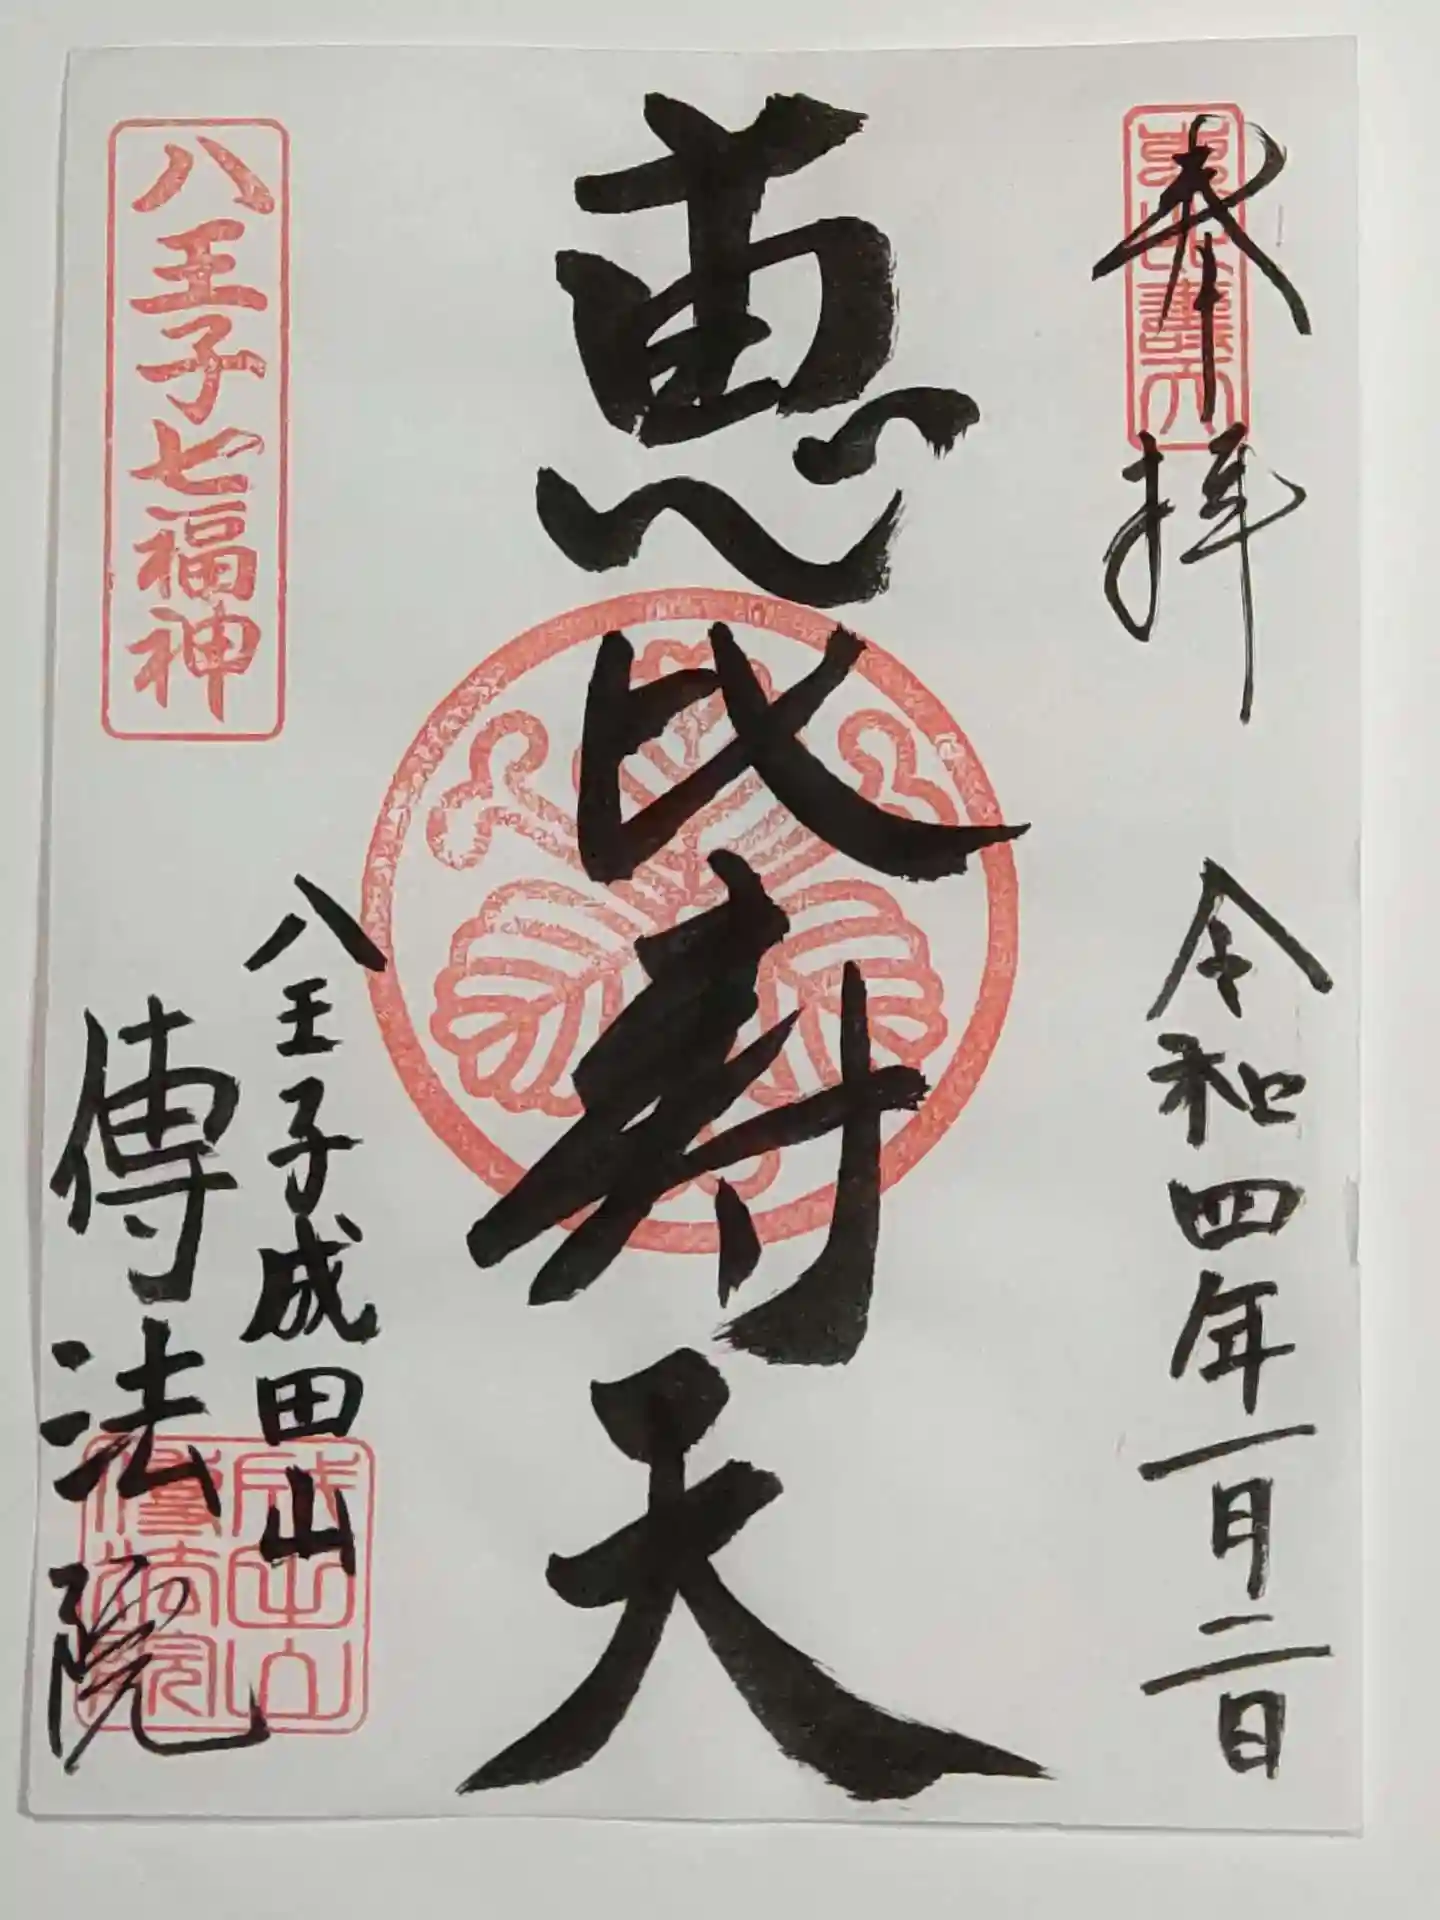 奉拝
令和四年一月二日
恵比寿天
八王子七福神
八王子成田山
傳法院
成田山
傳法院